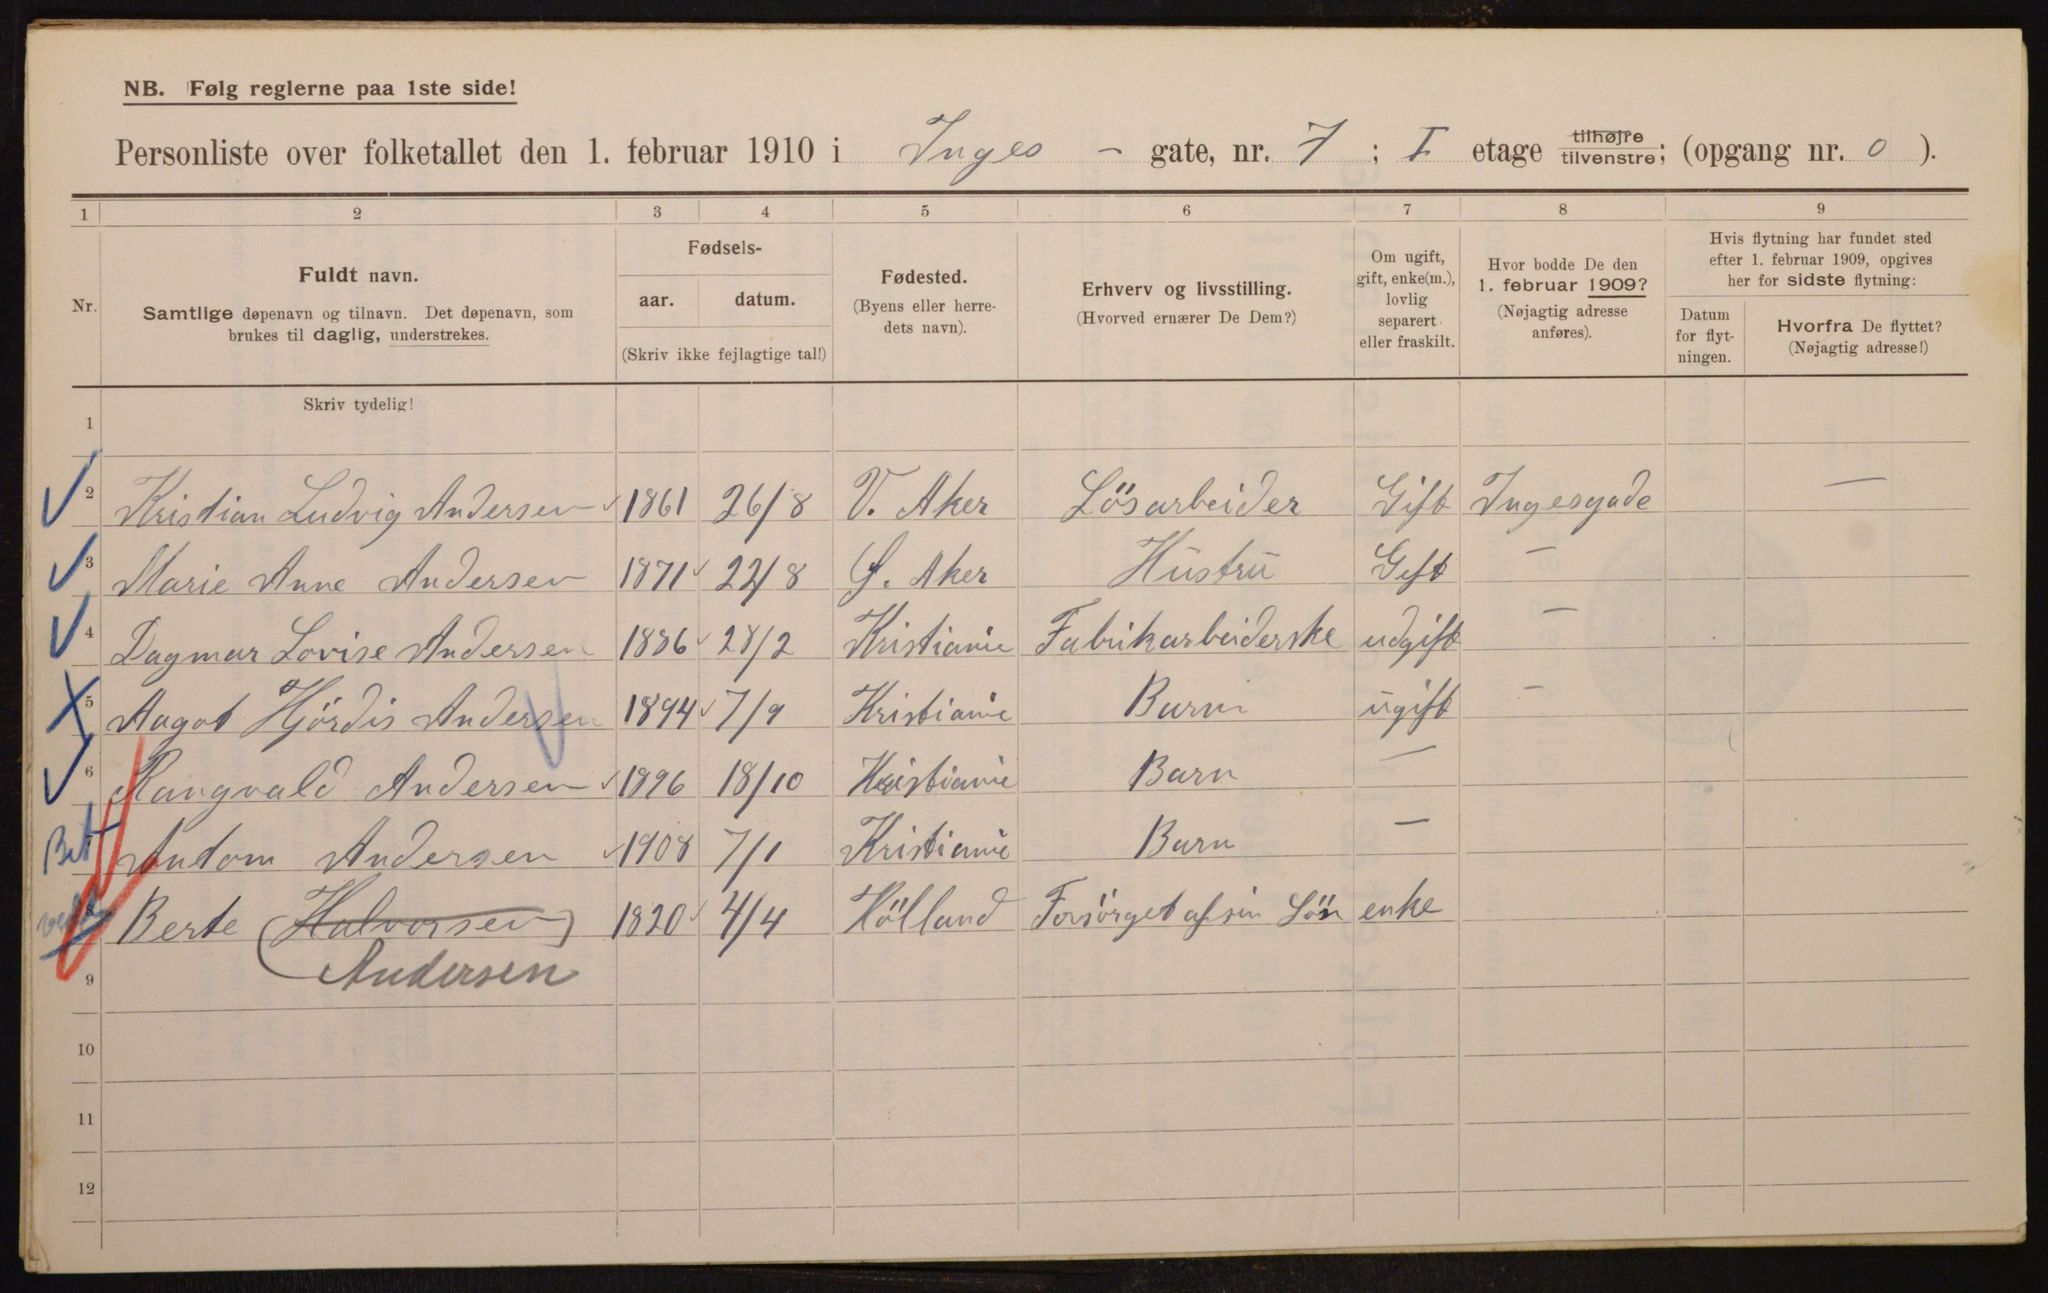 NB. Følg reglerne paa 1ste side!
Personliste over folketallet den 1. februar 1910 i Inges - gate, nr. 7 ; I etage tilhøjre tilvenstre; (opgang nr. 0 ).
1 2 3 4 5 6 7 8 9
Nr.
Fuldt navn.
Samtlige døpenavn og tilnavn. Det døpenavn, som
brukes til daglig, understrekes.
Fødsels-
aar. datum.
(Skriv ikke fejlagtige tal!)
Fødested.
(Byens eller herre-
dets navn).
Erhverv og livsstilling.
(Hvorved ernærer De Dem?)
Om ugift,
gift, enke(m.),
lovlig
separert
eller fraskilt.
Hvor bodde De den
1. februar 1909?
(Nøjagtig adresse
anføres).
Hvis flytning har fundet sted
efter 1. februar 1909, opgives
her for sidste flytning:
Datum
for flyt-
ningen.
Hvorfra De flyttet?
(Nøjagtig adresse!)
Skriv tydelig!
1
2 Kristian Ludvig Andersen 1861 26/8 V. Aker Lösarbeider Gift Ingesgade —
3 Marie Anne Andersen 1871 22/8 Ø. Aker Hustru Gift —
4 Dagmar Lovise Andersen 1886 28/2 Kristianie Fabrikarbeiderske udgift —
5 Aagot Hjördis Andersen 1894 7/9 Kristianie Barn ugift —
6 Rangvald Andersen 1896 18/10 Kristianie Barn —
Bet Antom Andersen 1908 7/1 Kristianie Barn —
8 Berte (Halvorsen) 1820 4/4 Hölland Forsörget af sin Sön enke
Andersen
9
10
11
12